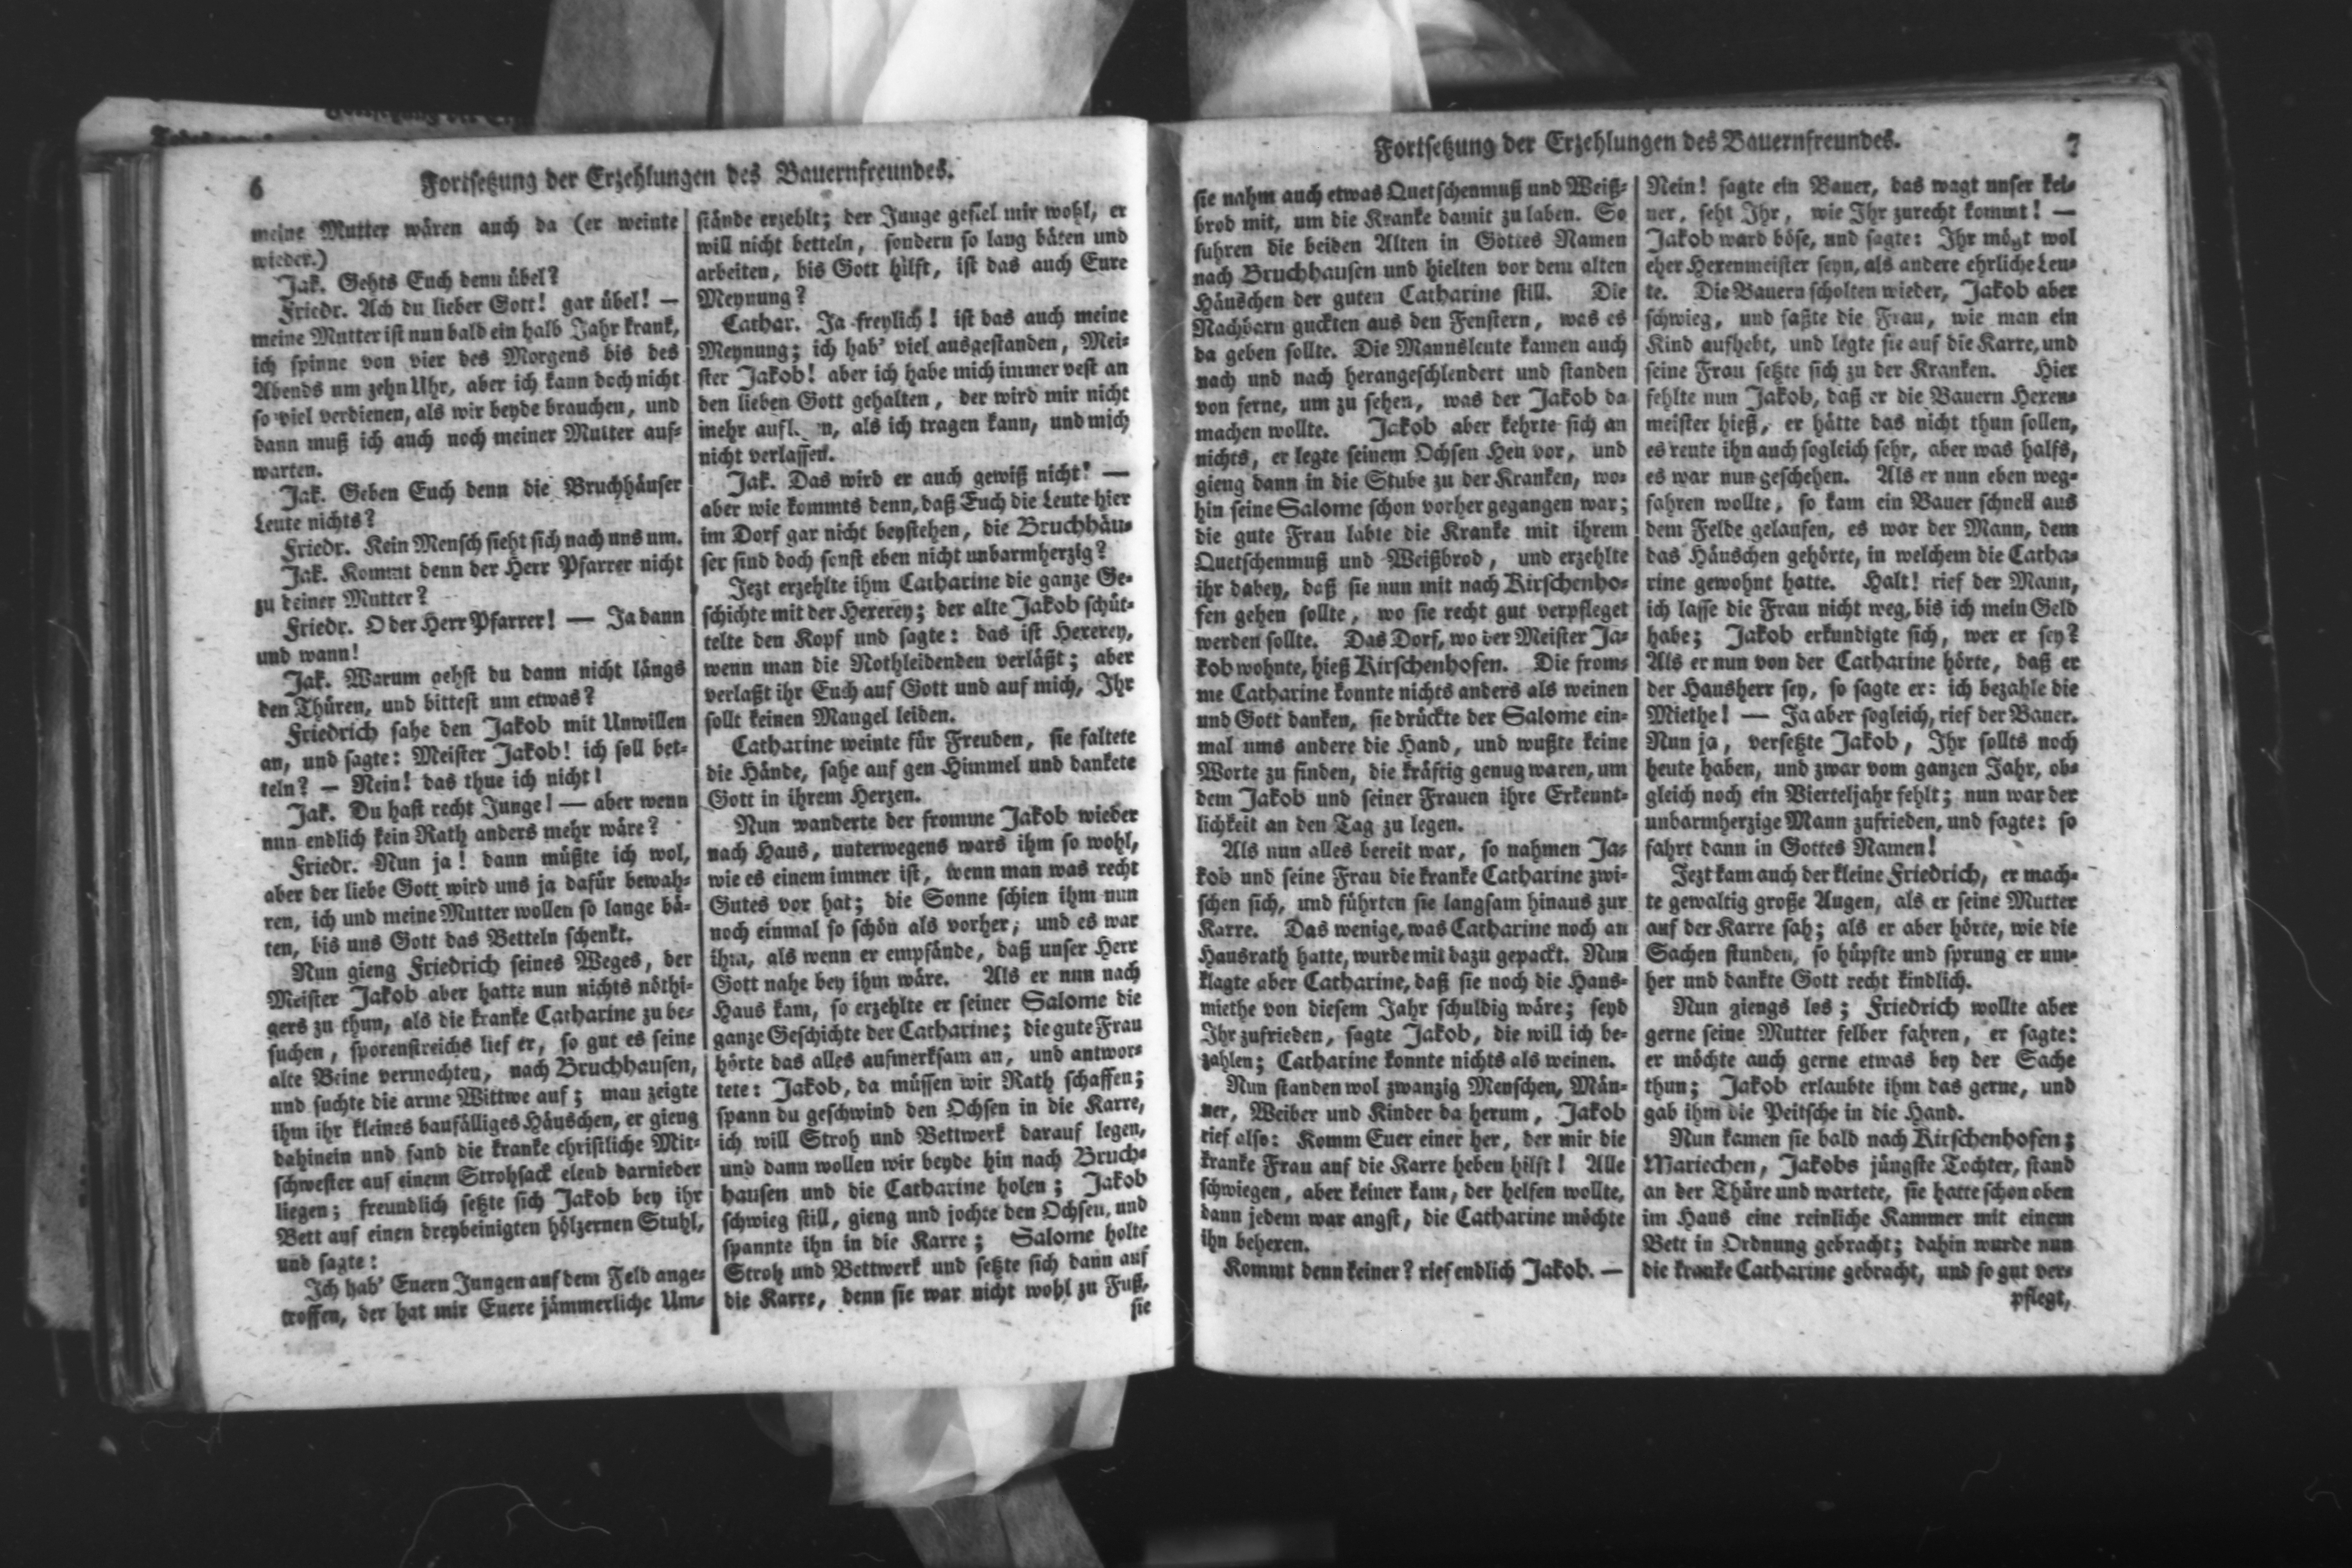 6
Fortsetzung der Erzehlungen des Bauernfreundes.
meine Mutter wären auch da (er weinte
wieder.)
Jak. Gehts Euch denn übel?
Friedr. Ach du lieber Gott! gar übel! —
meine Mutter ist nun bald ein halb Jahr krank,
ich spinne von vier des Morgens bis des
Abends um zehn Uhr, aber ich kann doch nicht
so viel verdienen, als wir beyde brauchen, und
dann muß ich auch noch meiner Mutter auf-
warten.
Jak. Geben Euch denn die Bruchhäuser
Leute nichts?
Friedr. Kein Mensch sieht sich nach uns um.
Jak. Kommt denn der Herr Pfarrer nicht
zu deiner Mutter?
Friedr. O der Herr Pfarrer! — Ja dann
und wann!
Jak. Warum gehst du dann nicht längs
den Thüren, und bittest um etwas?
Friedrich sahe den Jakob mit Unwillen
an, und sagte: Meister Jakob! ich soll bet-
teln? — Nein! das thue ich nicht!
Jak. Du hast recht Junge! — aber wenn
nun endlich kein Rath anders mehr wäre?
Friedr. Nun ja! dann müßte ich wol,
aber der liebe Gott wird uns ja dafür bewah-
ren, ich und meine Mutter wollen so lange bä-
ten, bis uns Gott das Betteln schenkt.
Nun gieng Friedrich seines Weges, der
Meister Jakob aber hatte nun nichts nöthi-
gers zu thun, als die kranke Catharine zu be-
suchen, sporenstreichs lief er, so gut es seine
alte Beine vermochten, nach Bruchhausen,
und suchte die arme Wittwe auf; man zeigte
ihm ihr kleines baufälliges Häuschen, er gieng
dahinein und fand die kranke christliche Mit-
schwester auf einem Strohsack elend darnieder
liegen; freundlich setzte sich Jakob bey ihr
Bett auf einen dreybeinigten hölzernen Stuhl,
und sagte:
Ich hab' Euern Jungen auf dem Feld ange-
troffen, der hat mir Euere jämmerliche Um-
stände erzehlt; der Junge gefiel mir wohl, er
will nicht betteln, sondern so lang bäten und
arbeiten, bis Gott hilft, ist das auch Eure
Meynung?
Cathar. Ja freylich! ist das auch meine
Meynung; ich hab' viel ausgestanden, Mei-
ster Jakob! aber ich habe mich immer vest an
den lieben Gott gehalten, der wird mir nicht
mehr als ich tragen kann, und mich
nicht verlassen.
Jak. Das wird er auch gewiß nicht! —
aber wie kommts denn, daß Euch die Leute hier
im Dorf gar nicht beystehen, die Bruchhäu-
ser sind doch sonst eben nicht unbarmherzig?
Jezt erzehlte ihm Catharine die ganze Ge-
schichte mit der Hexerey; der alte Jakob schüt-
telte den Kopf und sagte: das ist Hexerey,
wenn man die Nothleidenden verläßt; aber
verlaßt ihr Euch auf Gott und auf mich, Ihr
sollt keinen Mangel leiden.
Catharine weinte für Freuden, sie faltete
die Hände, sahe auf gen Himmel und dankete
Gott in ihrem Herzen.
Nun wanderte der fromme Jakob wieder
nach Haus, unterwegens wars ihm so wohl,
wie es einem immer ist, wenn man was recht
Gutes vor hat; die Sonne schien ihm nun
noch einmal so schön als vorher, und es war
ihm, als wenn er empfände, daß unser Herr
Gott nahe bey ihm wäre. Als er nun nach
Haus kam, so erzehlte er seiner Salome die
ganze Geschichte der Catharine; die gute Frau
hörte das alles aufmerksam an, und antwor-
tete: Jakob, da müssen wir Rath schaffen;
spann du geschwind den Ochsen in die Karre,
ich will Stroh und Bettwerk darauf legen,
und dann wollen wir beyde hin nach Bruch-
hausen und die Catharine holen; Jakob
schwieg still, gieng und jochte den Ochsen, und
spannte ihn in die Karre; Salome holte
Stroh und Bettwerk und setzte sich dann auf
die Karre, denn sie war nicht wohl zu Fuß,
sie
Fortsetzung der Erzehlungen des Bauernfreundes.
7
sie nahm auch etwas Quetschenmuß und Weiß-
brod mit, um die Kranke damit zu laben. So
fuhren die beiden Alten in Gottes Namen
nach Bruchhausen und hielten vor dem alten
Häuschen der guten Catharine still. Die
Nachbarn guckten aus den Fenstern, was es
da geben sollte. Die Mannsleute kamen auch
nach und nach herangeschlendert und standen
von ferne, um zu sehen, was der Jakob da
machen wollte. Jakob aber kehrte sich an
nichts, er legte seinem Ochsen Heu vor, und
gieng dann in die Stube zu der Kranken, wo-
hin seine Salome schon vorher gegangen war;
die gute Frau labte die Kranke mit ihrem
Quetschenmuß und Weißbrod, und erzehlte
ihr dabey, daß sie nun mit nach Kirschenho-
fen gehen sollte, wo sie recht gut verpfleget
werden sollte. Das Dorf, wo der Meister Ja-
kob wohnte, hieß Kirschenhofen. Die from-
me Catharine konnte nichts anders als weinen
und Gott danken, sie drückte der Salome ein-
mal ums andere die Hand, und wußte keine
Worte zu finden, die kräftig genug waren, um
dem Jakob und seiner Frauen ihre Erkennt-
lichkeit an den Tag zu legen.
Als nun alles bereit war, so nahmen Ja-
kob und seine Frau die kranke Catharine zwi-
schen sich, und führten sie langsam hinaus zur
Karre. Das wenige, was Catharine noch an
Hausrath hatte, wurde mit dazu gepackt. Nun
klagte aber Catharine, daß sie noch die Haus-
miethe von diesem Jahr schuldig wäre; seyd
Ihr zufrieden, sagte Jakob, die will ich be-
zahlen; Catharine konnte nichts als weinen.
Nun standen wol zwanzig Menschen, Män-
ner, Weiber und Kinder da herum, Jakob
rief also: Komm Euer einer her, der mir die
kranke Frau auf die Karre heben hilft! Alle
schwiegen, aber keiner kam, der helfen wollte,
dann jedem war angst, die Catharine möchte
ihn behexen.
Kommt denn keiner? rief endlich Jakob. —
Nein! sagte ein Bauer, das wagt unser kei-
ner, seht Ihr, wie Ihr zurecht kommt! —
Jakob ward böse, und sagte: Ihr mögt wol
eher Hexenmeister seyn, als andere ehrliche Leu-
te. Die Bauern scholten wieder, Jakob aber
schwieg, und faßte die Frau, wie man ein
Kind aufhebt, und legte sie auf die Karre, und
seine Frau setzte sich zu der Kranken. Hier
fehlte nun Jakob, daß er die Bauern Hexen-
meister hieß, er hätte das nicht thun sollen,
es reute ihn auch sogleich sehr, aber was halfs,
es war nun geschehen. Als er nun eben weg-
fahren wollte, so kam ein Bauer schnell aus
dem Felde gelaufen, es war der Mann, dem
das Häuschen gehörte, in welchem die Catha-
rine gewohnt hatte. Halt! rief der Mann,
ich lasse die Frau nicht weg, bis ich mein Geld
habe; Jakob erkundigte sich, wer er sey?
Als er nun von der Catharine hörte, daß er
der Hausherr sey, so sagte er: ich bezahle die
Miethe! — Ja aber sogleich, rief der Bauer.
Nun ja, versetzte Jakob, Ihr sollts noch
heute haben, und zwar vom ganzen Jahr, ob-
gleich noch ein Vierteljahr fehlt; nun war der
unbarmherzige Mann zufrieden, und sagte: so
fahrt dann in Gottes Namen!
Jezt kam auch der kleine Friedrich, er mach-
te gewaltig große Augen, als er seine Mutter
auf der Karre sah; als er aber hörte, wie die
Sachen stunden, so hüpfte und sprung er um-
her und dankte Gott recht kindlich.
Nun giengs los; Friedrich wollte aber
gerne seine Mutter selber fahren, er sagte:
er möchte auch gerne etwas bey der Sache
thun; Jakob erlaubte ihm das gerne, und
gab ihm die Peitsche in die Hand.
Nun kamen sie bald nach Kirschenhofen;
Mariechen, Jakobs jüngste Tochter, stand
an der Thüre und wartete, sie hatte schon oben
im Haus eine reinliche Kammer mit einem
Bett in Ordnung gebracht; dahin wurde nun
die kranke Catharine gebracht, und so gut ver-
pflegt,